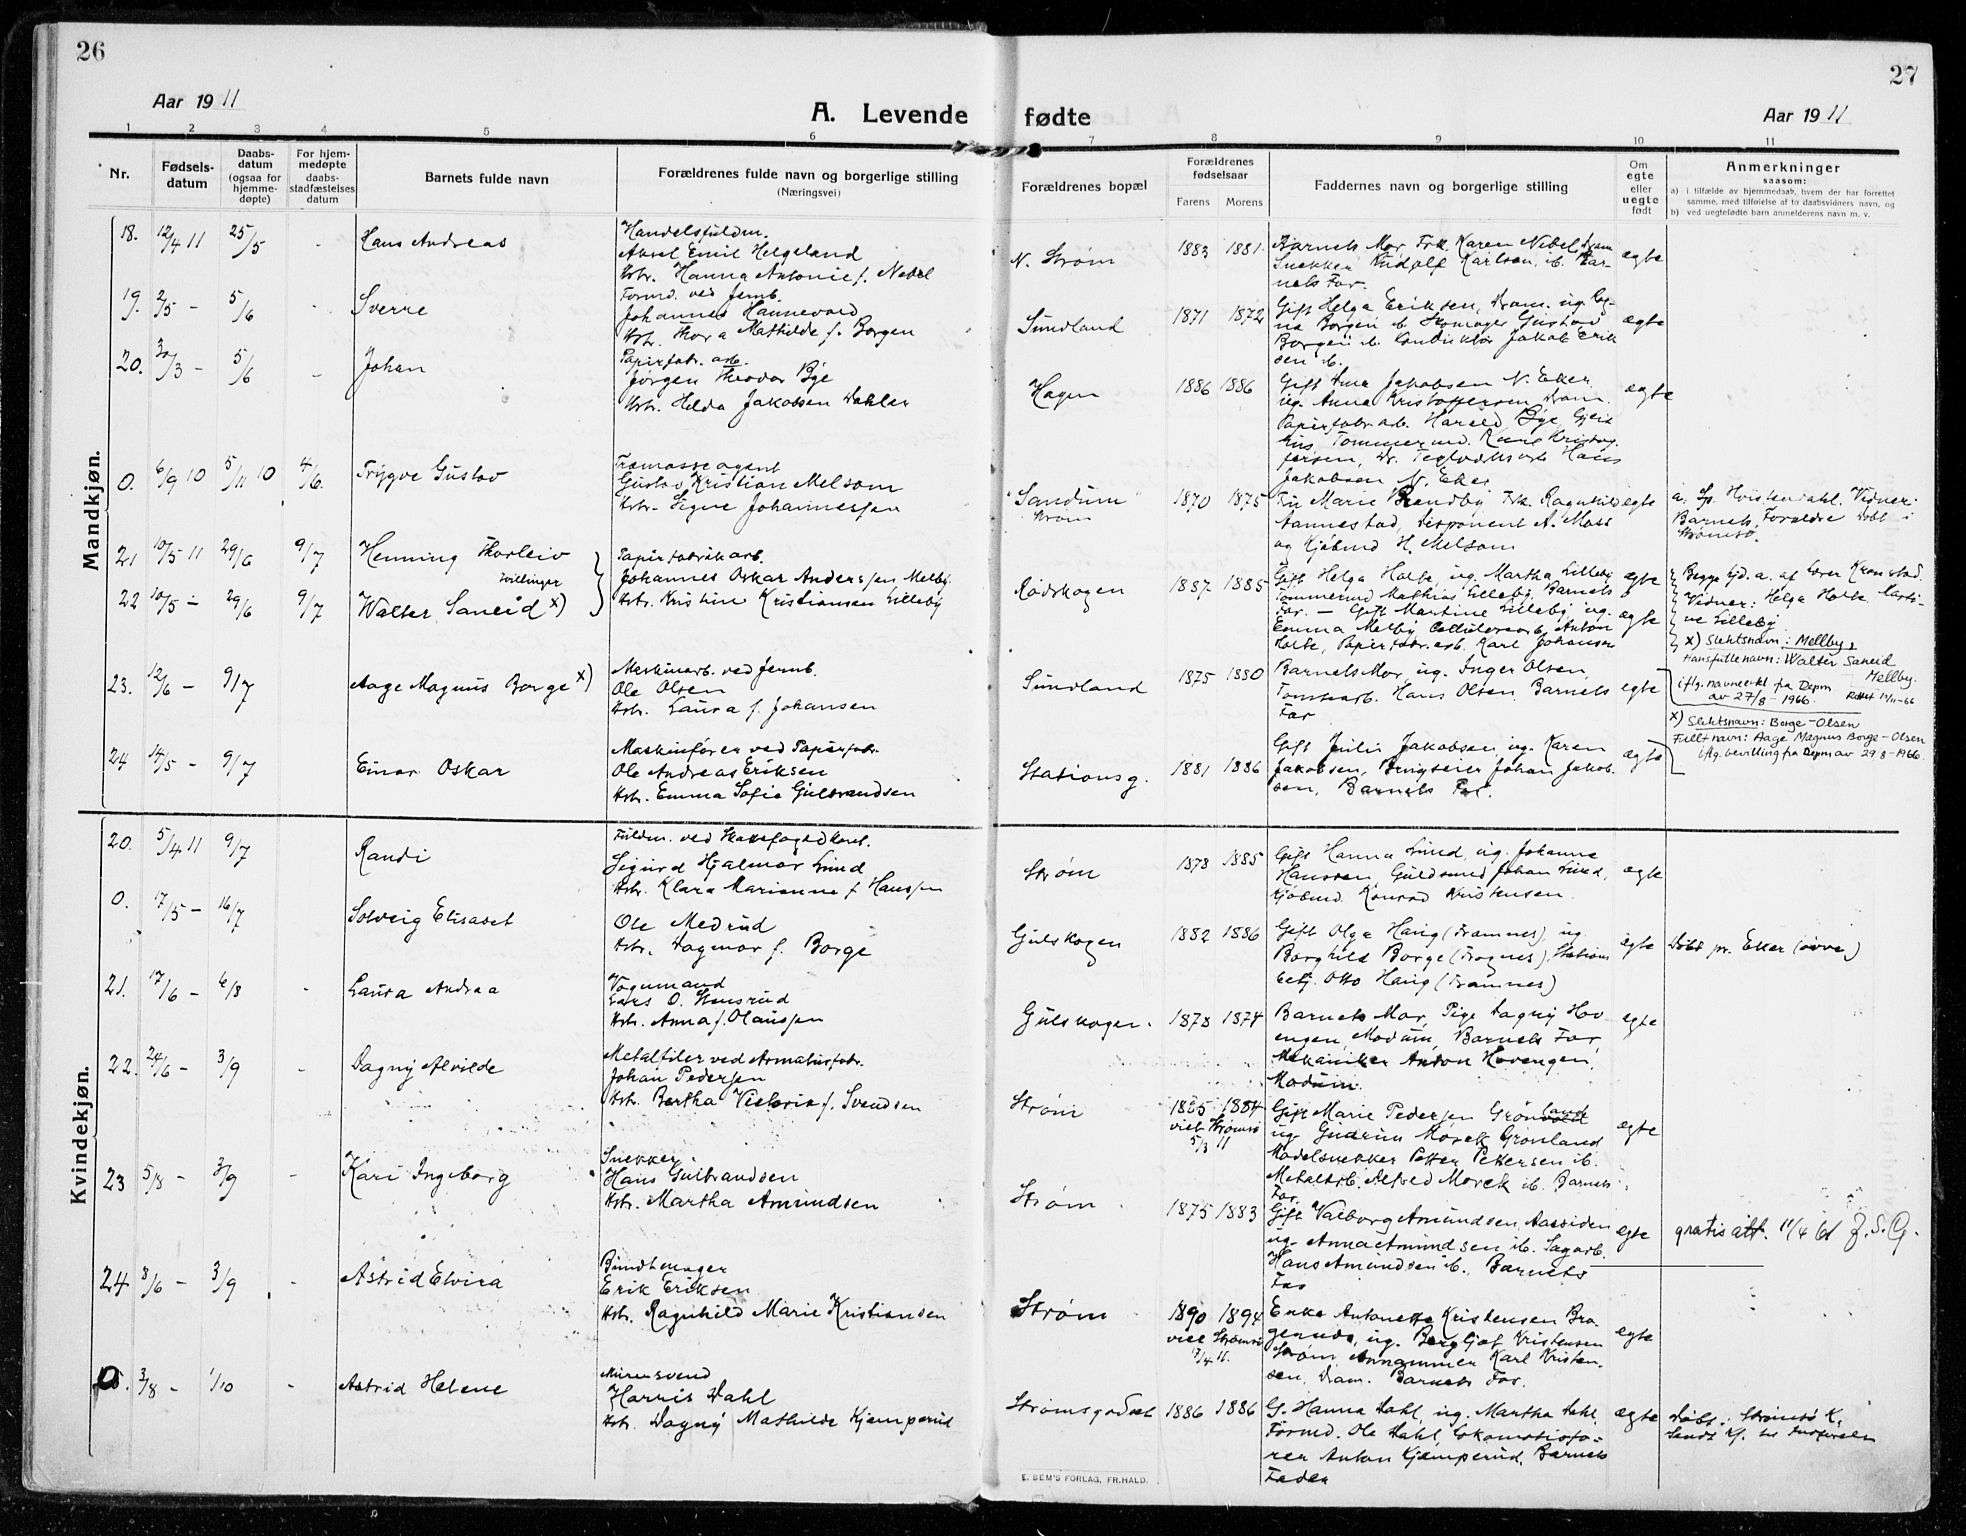 26
27
Aar 1911
A. Levende fødte
Aar 1911
1 2 3 4 5 6 7 8 9 10 11
Nr.
Fødsels-
datum
Daabs-
datum
(ogsaa for
hjemme-
døpte)
For hjem-
medøpte
daabs-
stadfæstelses
datum
Barnets fulde navn
Forældrenes fulde navn og borgerlige stilling
(Næringsvei)
Forældrenes bopæl
Forældrenes
fødselsaar
Farens Morens
Faddernes navn og borgerlig stilling
Om
egte
eller
uegte
født
Anmerkninger
saasom:
a) i tilfælde av hjemmedaab, hvem der har forrettet
samme, med tilføielse af to daabsvidners navn, og
b) ved uegtefødte barn anmelderens navn m. v.
Mandkjøn.
18. 12/4 11 25/5 - Hans Andreas
Handelsfuldm.
Aksel Emil Helgeland
Hstr. Hanna Antonie f. Nebel
N. Strøm 1883 1881
Barnets Mor, Frk. Karen Nebel, Dram.
Snekker Rudolf Karlsen, ib. Bar-
nets Far.
egte
19. 2/5 - 5/6 - Sverre
Formd. ved Jernb.
Johannes Hannevold
Hstr. Thora Mathilde f. Borgen
Sundland 1871 1872
Gift Helga Eriksen, Dram. ug.
na Borgen ib. Skomager Gustav
Borgen ib. Konduktør Jakob Erik
sen ib.
egte
20. 30/3 - 5/6 - Johan
Papirfabr. arb.
Jørgen Theodor Bye
Hstr. Helda Jakobsen Dahler
Hagen 1886 1886
Gift Jakobsen N. Eker
ug. Anna Kristoffersen Dram.
Papirfabr. arb. Harald Bye,
Tømmermd.
fersen, Dr. Teglverksarb. Hans
Jakobsen N. Eker
egte
0. 6/9 10 5/11 10 4/6. Trygve Gustav
Træmasseagent
Gustav Kristian Melsom
Hstr. Signe Johannessen
"Sandum"
Strøm
1870 1875
Fru Marie Brendby Frk. Ragnhild
Aannestad, Disponent A. Moss
og Kjøbmd H. Melsom
egte
a. Sp. Hvistendahl. Vidner:
Barnets Forældre Døbt i
Strømsø.
21 10/5 11 29/6 9/7 Henning Thorleiv
Tvillinger
22 10/5 - 29/6 9/7 Walter Saneid x)
Papirfabrikarb.
Johannes Oskar Anderssen Melby
Hstr. Kristine Kristiansen Lilleby
Rødskogen 1887 1885
Gift Helga Holte, ug. Martha Lilleby
Tømmermd Mathias Lilleby, Barnets
Far. - Gift Martine Lilleby ug.
Emma Melby Cellulosearb. Anton
Holte, Papirfabr. arb. Karl Johansen
egte
egte
Begge hjd. a. af Lærer Kronstad.
Vidner: Helga Holte, Marti-
ne Lilleby
x) Slektsnavn: Mellby,
Hans fulle navn: Walter Saneid
Mellby.
iflg. navneerkl fra Depm
av 27/8 - 1966.
23. 12/6 - 9/7 Aage Magnus Borge x)
Maskinarb. ved Jernb.
Ole Olsen
Hstr. Laura f. Johansen
Sundland 1875 1880
Barnets Mor, ug. Inger Olsen,
Tomtearb. Hans Olsen, Barnets
Far
egte
x) Slektsnavn: Borge-Olsen
Fullt navn: Aage Magnus Borge-Olsen
iflg. bevilling fra Depm av 29 8-1966
24 14/5 - 9/7 Einar Oskar
Maskinfører ved Papirfabr.
Ole Andreas Eriksen
Hstr. Emma Sofie Gulbrandsen
Stationsg. 1881 1886
Gift Julie Jakobsen, ug. Karen
Jakobsen, Brugseier Johan Jakob
sen, Barnets Far.
egte
Kvindekjøn.
20. 5/4 11 9/7 Randi
Fuldm. ved Skattefogedkont.
Sigurd Hjalmar Lund
Hstr. Klara Marianne f. Hanssen
Strøm 1878 1885
Gift Hanna Lund, ug. Johanne
Hanssen, Guldsmed Johan Lund,
Kjøbmd. Konrad Kristensen.
egte
0. 17/5 - 16/7 Solveig Elisabet
Ole Medrud
Hstr. Dagmar f. Borge
Gulskogen 1882 1886
Gift Olga Haug (Framnes), ug.
Borghild Borge (Frognes), Stations
betj. Otto Haug (Framnes)
egte
Døbt pr. Eker (øvre)
21. 17/6 - 6/8 - Laura Andrea
Vognmand
Lars O. Stensrud
Hstr. Anna f. Olaussen
Gulskogen. 1878 1874
Barnets Mor, Pige Dagny Hov
engen, Modum, Barnets Far,
Mekaniker Anton Hovengen,
Modum.
egte
22. 24/6 - 3/9 - Dagny Alvilde
Metalfiler ved Armaturfabr.
Johan Pedersen
Hstr. Bertha Victoria f. Svendsen
Strøm 1885 1884
viet Strømsø
5/3 11
Gift Marie Pedersen Grønland
ug. Gudrun Morck Grønland
Modelsnekker Petter Pettersen ib.
Metalarb. Alfred Morck ib. Barnets
Far.
egte
23 5/8 - 3/9 - Kari Ingeborg
Snekker
Hans Gulbrandsen
Hstr. Martha Amundsen
Strøm 1875 1883
Gift Valborg Amundsen, Aassiden
ug. Anna Amundsen ib. Sagarb.
Hans Amundsen ib., Barnets
Far
egte
gratis att. 11/4 61 Z.S.G.
24 8/6 - 3/9 - Astrid Elvira
Bundtmager
Erik Eriksen
Hstr. Ragnhild Marie Kristiansen
Strøm 1890 1894
viet Strømsø
17/4 11.
Enke Antonette Kristensen Bra-
genæs, ug. Bergljot Kristensen
Strøm, Karl Kristen-
sen, Dram. Barnets Far.
egte
0. 3/8 - 1/10 - Astrid Helene
Murersvend
Harris Dahl
Hstr. Dagny Mathilde Kjemperud
Strømsgodset 1886 1886
G. Hanna Dahl, ug. Martha Dahl,
Formd. Ole Dahl, Lokomotivfø-
rer Anton Kjemperud, Barnets
Fader
egte
Døbt i Strømsø K.
E. SEM'S FORLAG, FR.HALD.